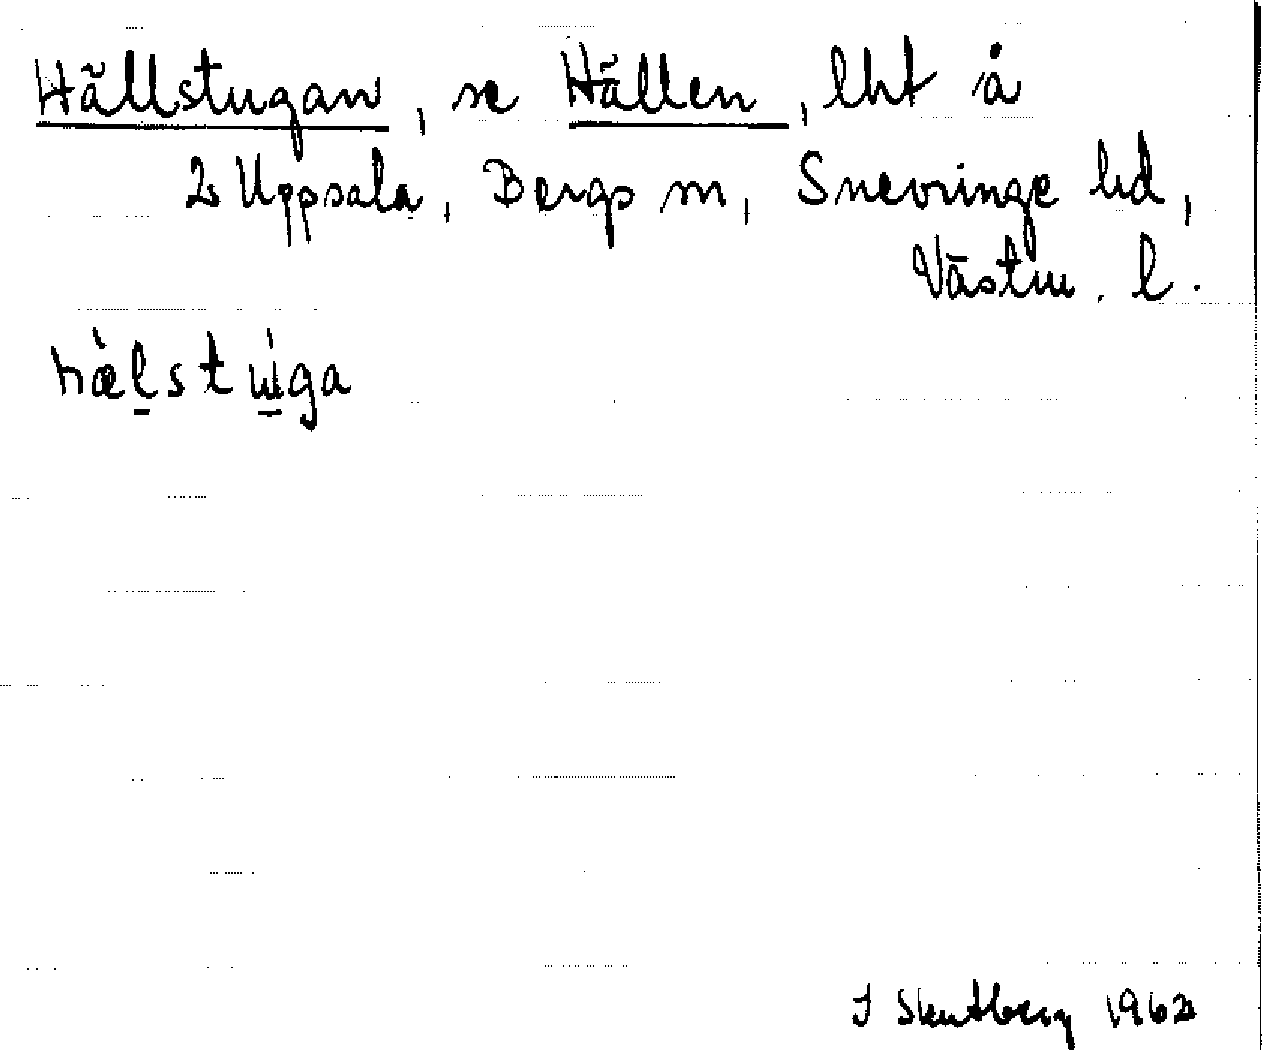 Hällstugan, se Hällen, lht å
2s Uppsala, Bergs sn, Snevringe hd,
Västm. l.
hæ̀l̠stu̠̍ga
J Skutberg 1962